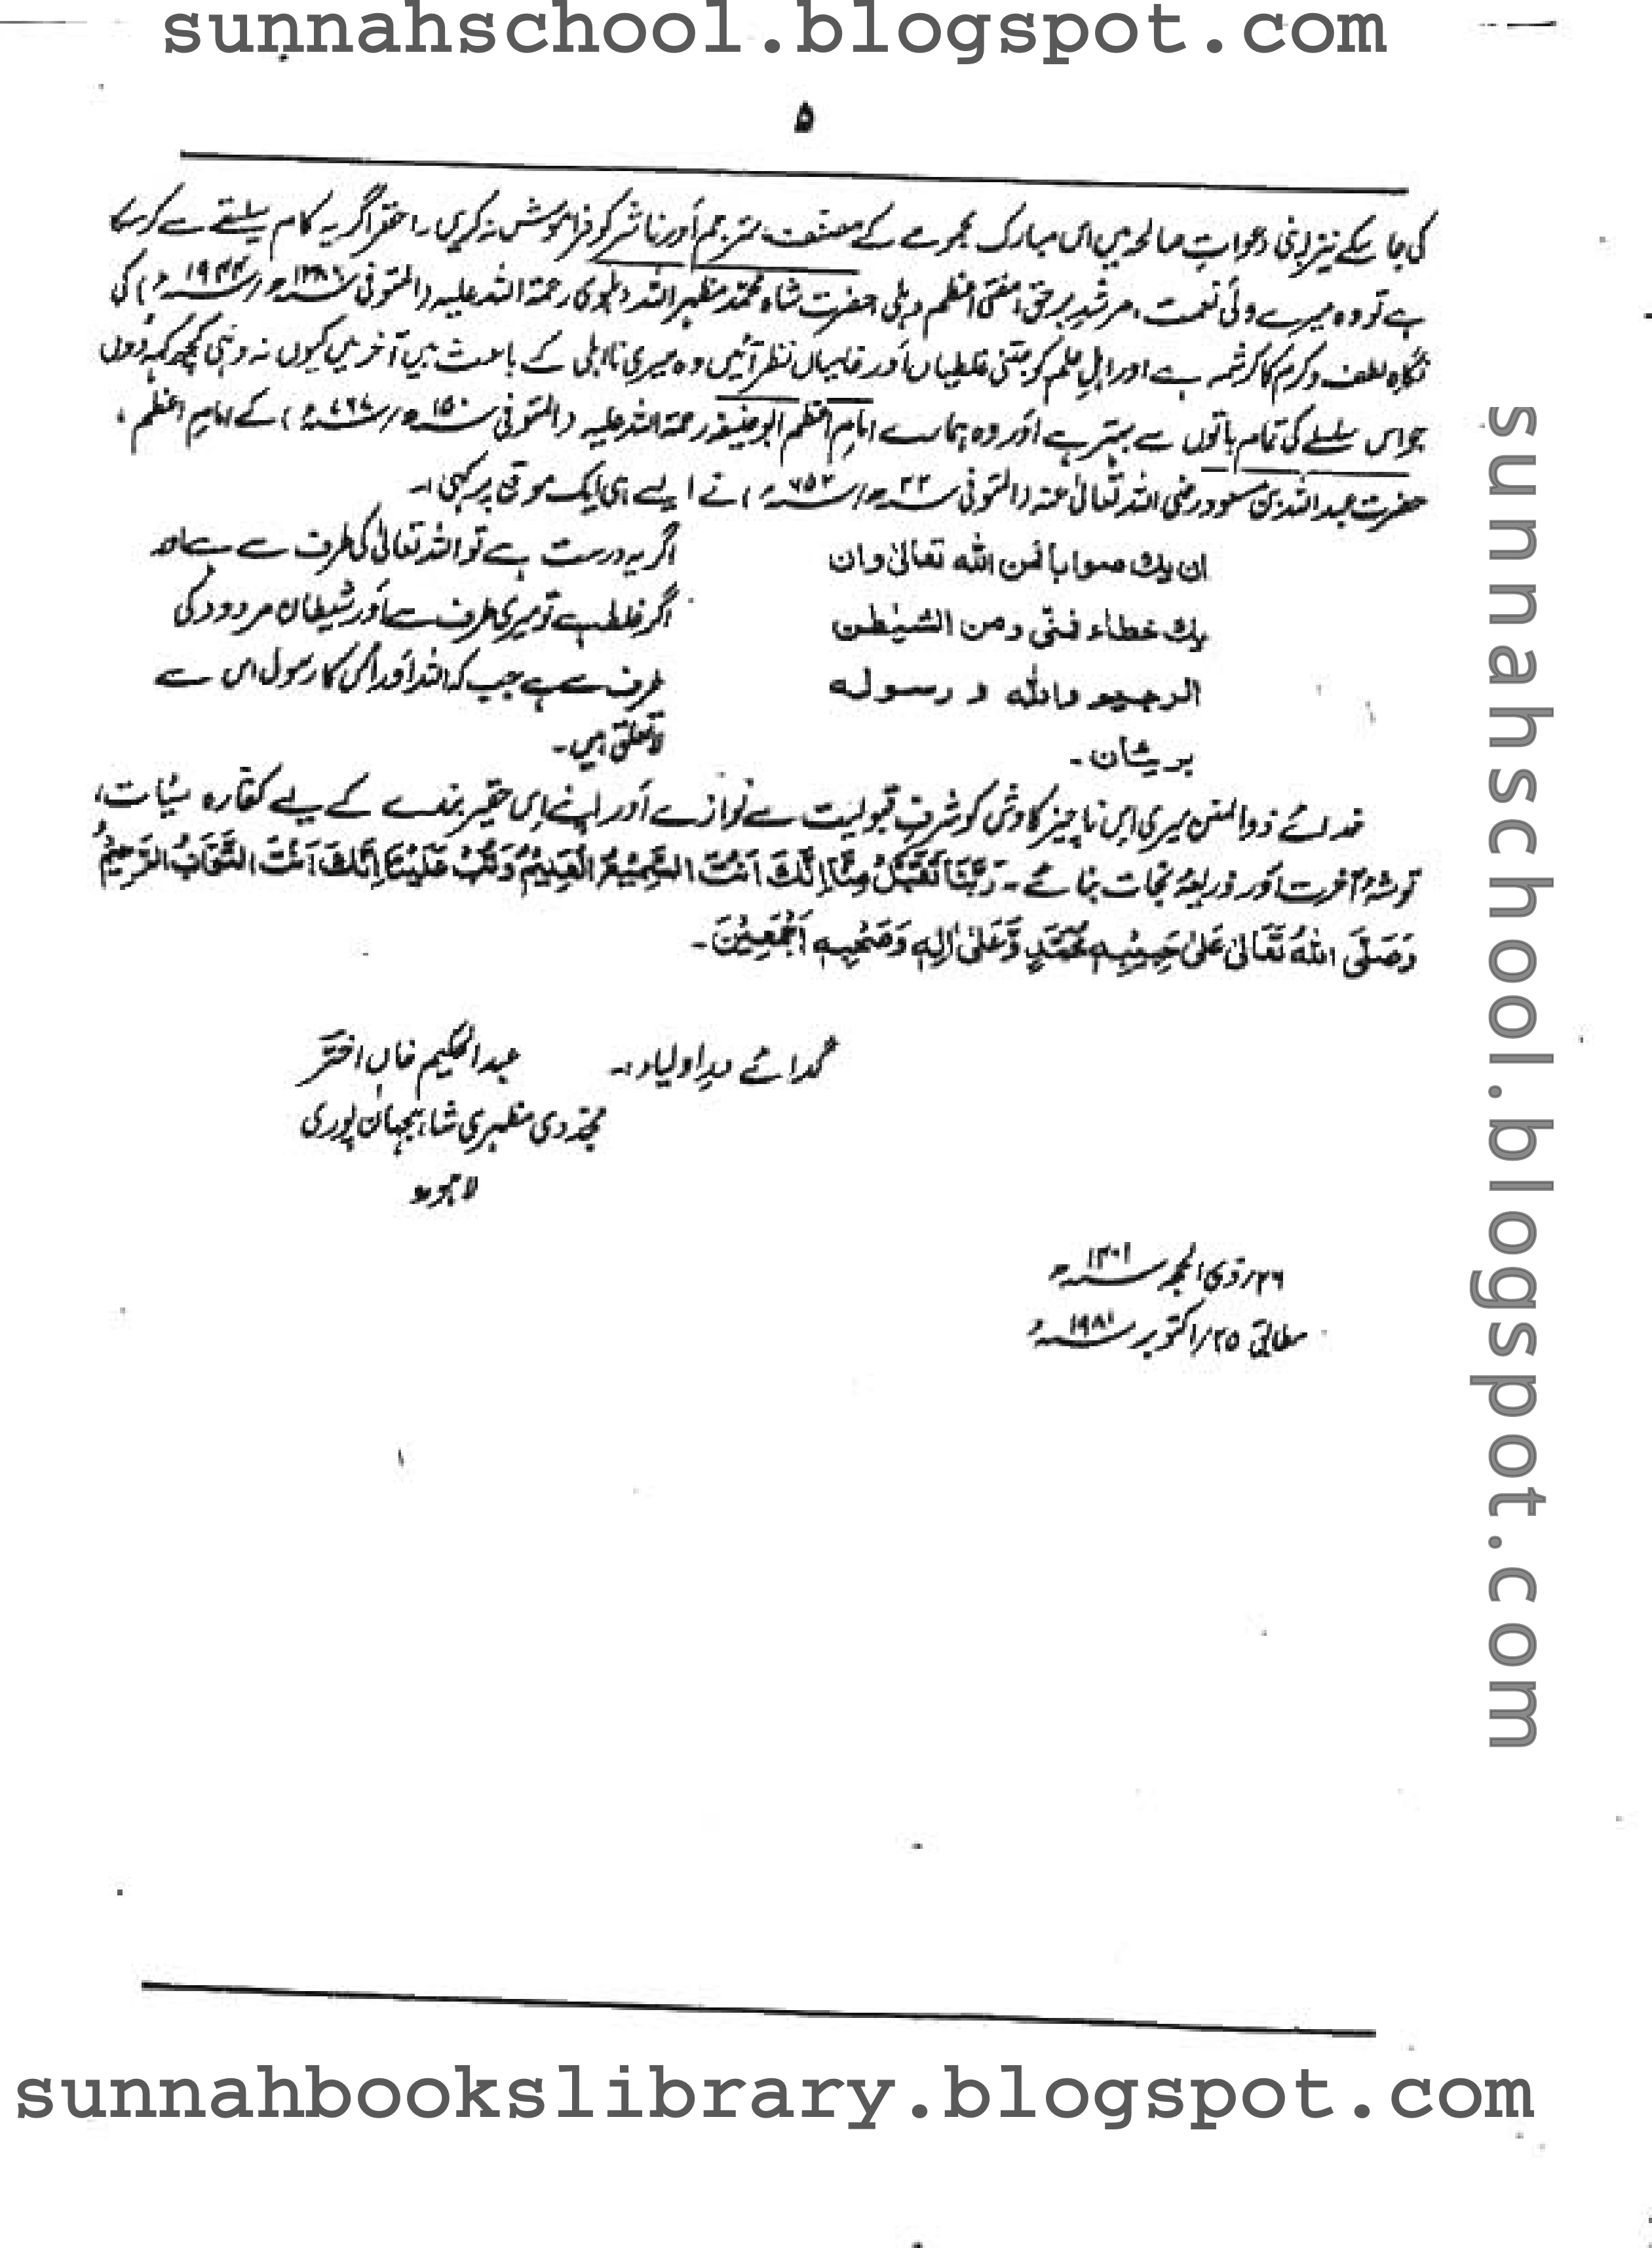 sunnahschool.blogspot.com
۵
کی جا سکے نیز اپنی دعواتِ صالحہ میں اس مبارک مجموعے کے مصنف، مترجم اَور ناشر کو فراموش نہ کریں۔ احقر اگر یہ کام سلیقے سے کر سکا
ہے تو وہ میرے ولیٔ نعمت، مرشدِ برحق، مفتیٔ اعظم دہلی حضرت شاہ محمّد مظہر اللہ دہلوی رحمۃ اللہ علیہ (المتوفی ۱۳۸۶ھ/۱۹۶۶ء) کی
نگاہِ لطف و کرم کا کرشمہ ہے اور اہلِ علم کو جتنی غلطیاں اَور خامیاں نظر آئیں وہ میری نااہلی کے باعث ہیں آخر میں کیوں نہ وہی کچھ کہہ دُوں
جو اس سلسلے کی تمام باتوں سے بہتر ہے اَور وہ ہمارے امامِ اعظم ابوحنیفہ رحمۃ اللہ علیہ (المتوفی ۱۵۰ھ/۷۶۷ء) کے امامِ اعظم،
حضرت عبداللہ بن مسعود رضی اللہ تعالیٰ عنہ (المتوفی ۳۲ھ/۶۵۲ء) نے ایسے ہی ایک موقع پر کہی:۔
ان یك صوابا فمن الله تعالیٰ وان
یك خطاء فمنّی ومن الشیطٰن
الرجیم والله و رسوله
بریئان۔
اگر یہ درست ہے تو اللہ تعالیٰ کی طرف سے ہے اور
اگر غلط ہے تو میری طرف سے اَور شیطان مردود کی
طرف سے ہے جب کہ اللہ اَور اُس کا رسول اس سے
لاتعلق ہیں۔
خدائے ذوالمنن میری اِس ناچیز کاوش کو شرفِ قبولیت سے نوازے اَور اپنے اِس حقیر بندے کے لیے کفّارہ سیّئات،
توشۂ آخرت اَور ذریعۂ نجات بنائے۔ رَبَّنَا تَقَبَّلْ مِنَّا اِنَّكَ اَنْتَ السَّمِیْعُ الْعَلِیْمُ وَتُبْ عَلَیْنَا اِنَّكَ اَنْتَ التَّوَّابُ الرَّحِیْمُ
وَصَلَّی اللهُ تَعَالیٰ عَلیٰ حَبِیْبِهٖ مُحَمَّدٍ وَّعَلیٰ اٰلِهٖ وَصَحْبِهٖ اَجْمَعِیْنَ۔
گدائے درِ اولیاء:۔ عبدالحکیم خاں اختر
مجدّدی مظہری شاہجہان پوری
لاہور
۲۶؍ذی الحجہ ۱۴۰۱ھ
مطابق ۲۵؍اکتوبر ۱۹۸۱ء
sunnahschool.blogspot.com
sunnahbookslibrary.blogspot.com